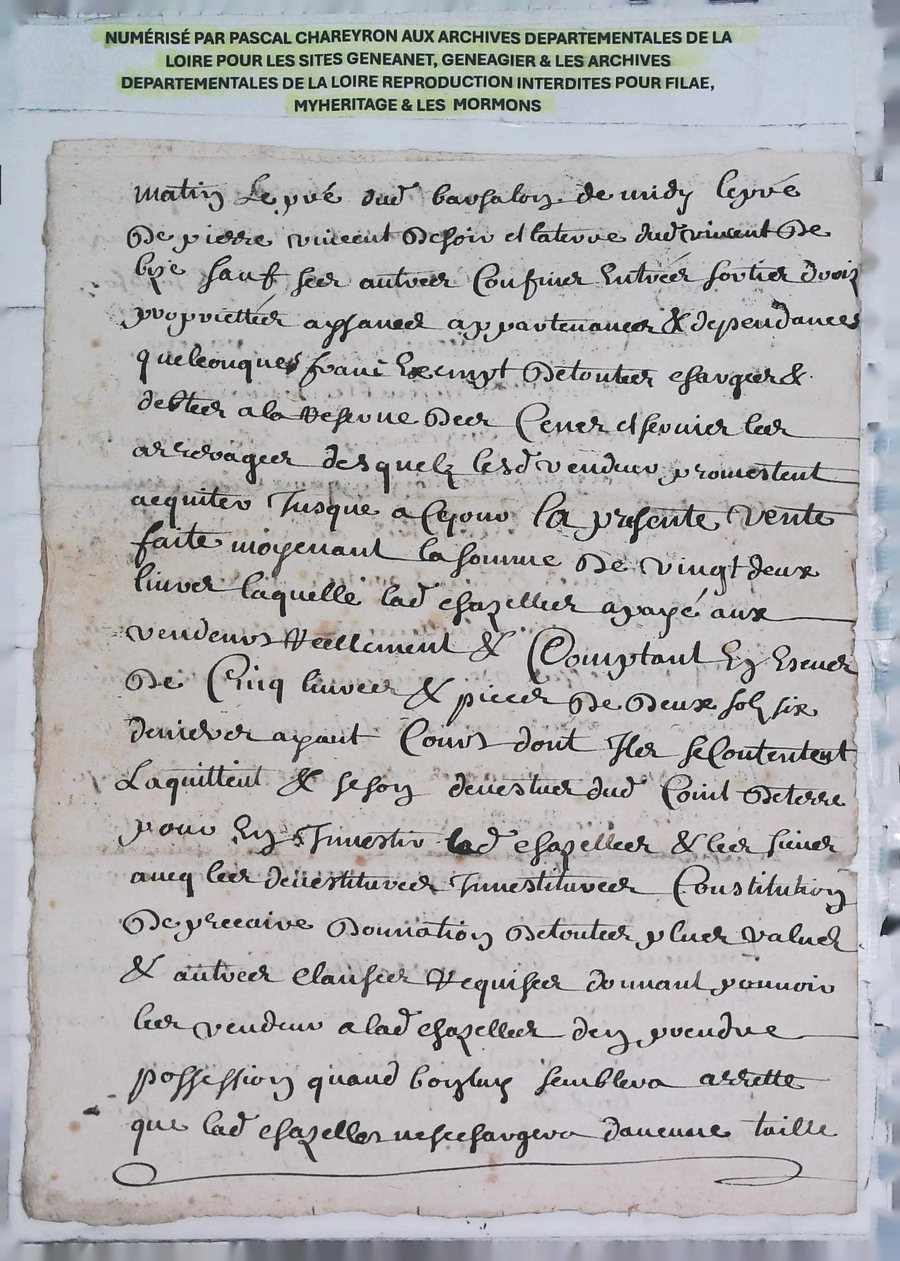 NUMÉRISÉ PAR PASCAL CHAREYRON AUX ARCHIVES DEPARTEMENTALES DE LA
LOIRE POUR LES SITES GENEANET, GENEAGIER & LES ARCHIVES
DEPARTEMENTALES DE LA LOIRE REPRODUCTION INTERDITES POUR FILAE,
MYHERITAGE & LES MORMONS
matin Le pré dud barjalon de midy le pré
De pierre vincent De soir et laterre dud vincent De
bize sauf ses autres Confins Entrées sorties droiz
proprietés aysances appartenances & dependances
quelconques franc Exempt De toutes charges &
debtes a la Reserve Des Cens et servis les
arrerages desquelz lesd vendeurs promettent
acquiter Jusque a Ce jour la presente vente
faite moyenant la somme De vingt deux
livres laquelle lad chazelles a payé aux
vendeurs Reellement & Comptant En Escus
De Cinq livres & pieces De Deux solz six
deniers ayant Cours dont Ils se Contentent
Laquittent & se son devestus dud Coint De terre
pour En Investir lad chazelles & les siens
avecq les devestitures Investitures Constitution
De precaire Donnation De toutes plues values
& autres clauses Requises donnant pouvoir
les vendeurs a lad chazelles den prendre
possession quand bon luy semblera arretté
que lad chazelles ne se chargera daucune taille